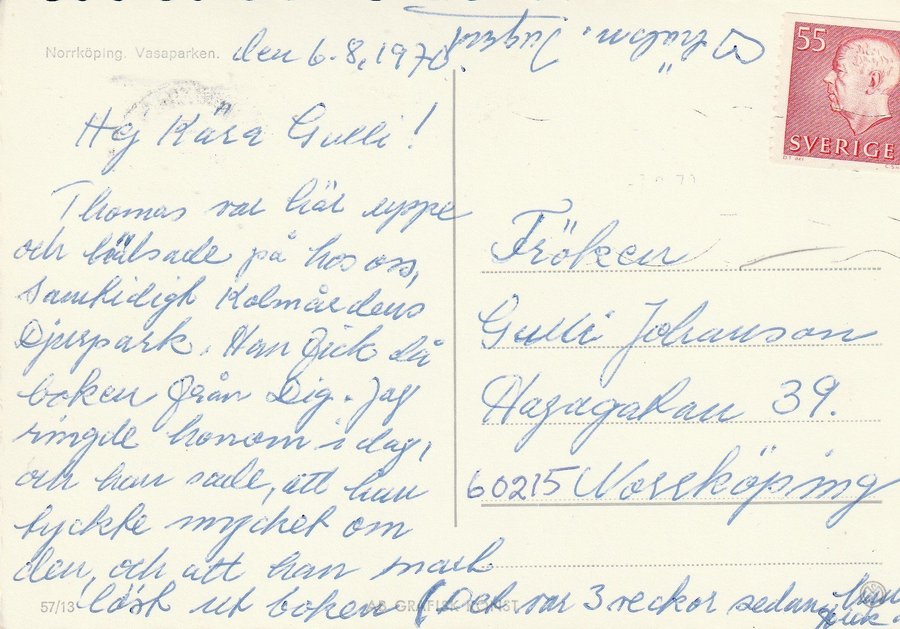 Norrköping. Vasaparken.
den 6.8.1970.
Hej Kära Gulli!
Thomas var här uppe
och hälsade på hos oss,
samtidigt Kolmårdens
Djurpark. Han fick då
boken från Dig. Jag
ringde honom i dag,
och han sade, att han
tyckte mycket om
den, och att han snart
läst ut boken (Det var 3 veckor sedan han
fick.
57/13
AB GRAFISK KONST
55
SVERIGE
Fröken
Gulli Johanson
Hagagatan 39.
60215 Norrköping
Ingrid